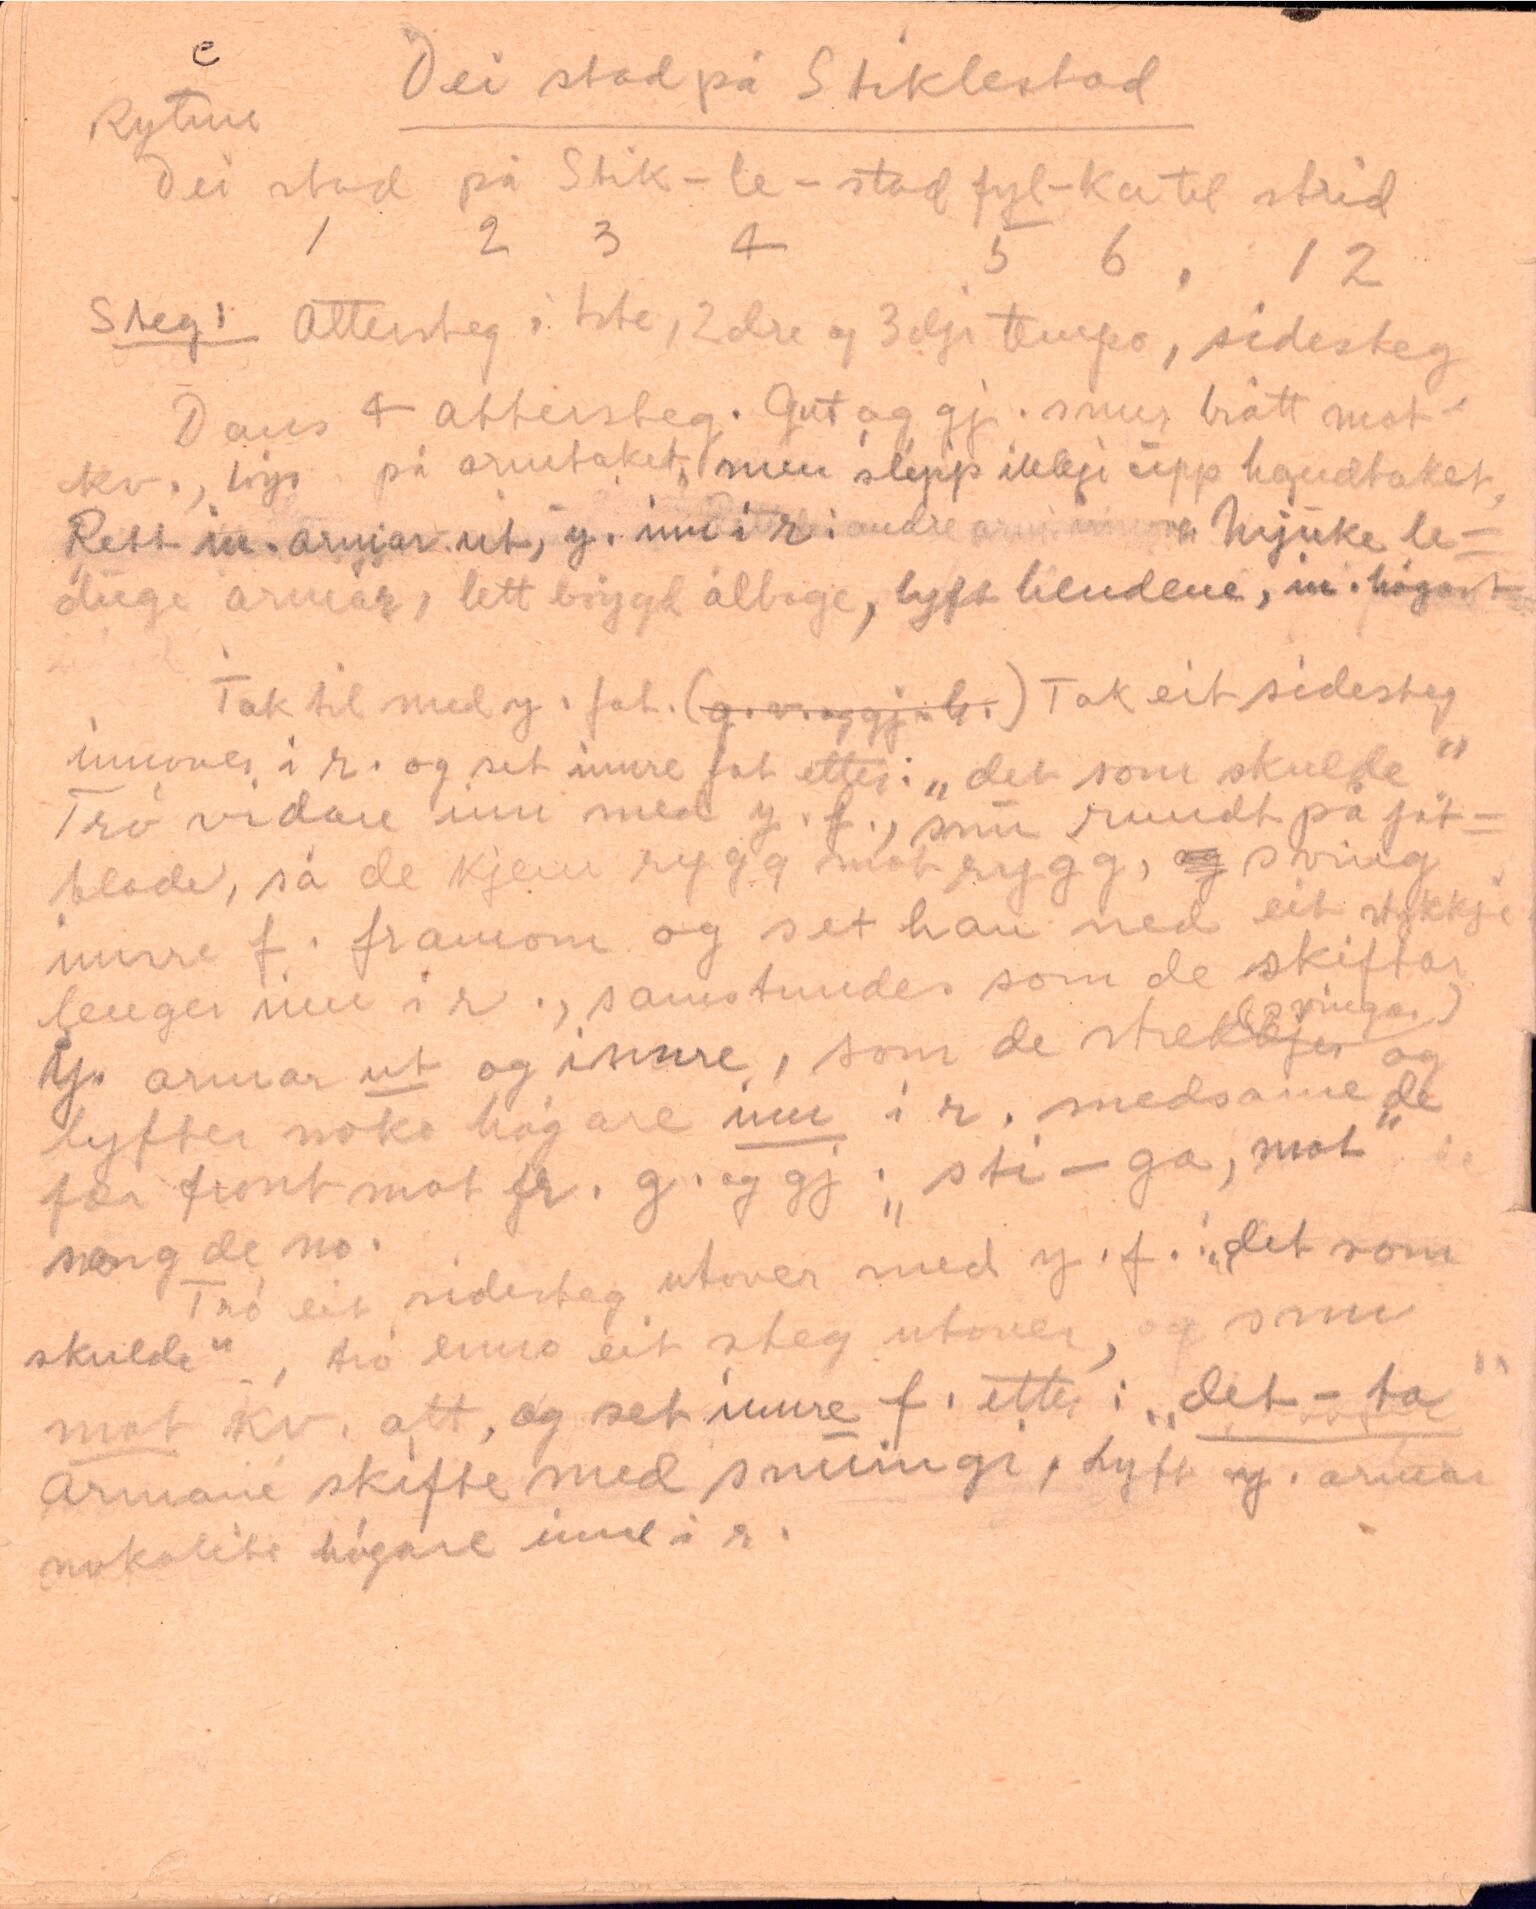 e
Dei stod på Stiklestad
Rytme
Dei stod på Stik-le-stad fyl-ka til strid
1 2 3 4 5 6, 1 2
Steg: Attersteg i 1ste, 2dre og 3dje tempo, sidesteg
Dans 4 attersteg. Gut og gj. snur brått mot
kv., løys på armtaket, men slepp ikkje upp handtaket,
Rett in. armar ut, y. inn i r. Mjuke le-
duge armar, lett bøygd ålboge, lyft hendene, in. høgast
Tak til med y. fot. (g. v. og gj. h.) Tak eit sidesteg
innover i r. og set inure fot etter: „det som skulde"
Trø vidare inn med y. f., snu rundt på fot-
blade, så de kjem rygg mot rygg, og sving
inure f. framom og set han ned eit stykkje
lenger inn i r., samstundes som de skiftar
(svingar)
y. armar ut og innre, som de strekkjer og
lyfter noko høgare inn i r. medsame de
fær front mot fr. g. og gj: „sti-ga, mot"
song de no.
Trø eit sidesteg utover med y. f.: „det som
skulde", trø enno eit steg utover, og snu
mot kv. att, og set innre f. etter: „det-ta"
Armane skifte med snuingi, lyft y. armar
nokolite høgare inn i r.